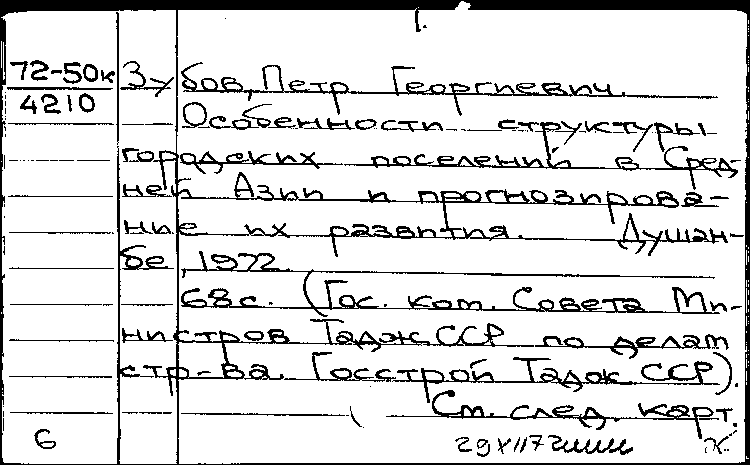 1.
72-50к Зубов, Петр Георгиевич.
4210 Особенности структуры
городских поселений в Сред-
ней Азии и прогнозирова-
ние их развития. Душан-
бе, 1972.
68с. (Гос. ком. Совета Ми-
нистров Тадж.ССР по делам
стр-ва. Госстрой Тадж ССР).
См. след. карт.
6